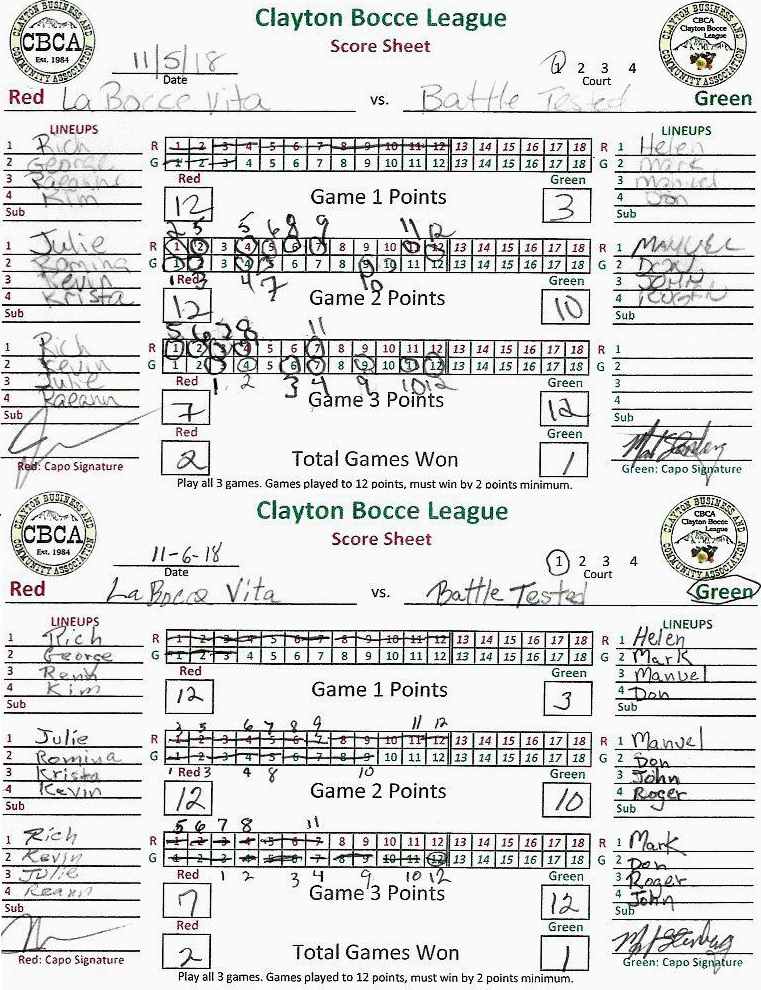 Clayton Bocce League
Score Sheet
CBCA
Est. 1984
CLAYTON BUSINESS AND COMMUNITY ASSOCIATION
CBCA Clayton Bocce League
11/5/18
Date
1 2 3 4
Court
Red La Bocce Vita vs. Battle Tested Green
LINEUPS
LINEUPS
1 Rich R 1 2 3 4 5 6 7 8 9 10 11 12 13 14 15 16 17 18 R 1 Helen
2 George G 1 2 3 4 5 6 7 8 9 10 11 12 13 14 15 16 17 18 G 2 Mark
3 Red Green 3 Manuel
4 Kim 12 Game 1 Points 3 4 Don
Sub Sub
2 5 5 6 8 9 11 12
1 Julie R 1 2 3 4 5 6 7 8 9 10 11 12 13 14 15 16 17 18 R 1 MANUEL
2 Romina G 1 2 3 4 5 6 7 8 9 10 11 12 13 14 15 16 17 18 G 2 DON
3 Kevin 1 Red 3 4 7 10 Green 3 JOHN
4 Krista 12 Game 2 Points 10 4
Sub Sub
5 6 7 8 11
1 Rich R 1 2 3 4 5 6 7 8 9 10 11 12 13 14 15 16 17 18 R 1
2 Kevin G 1 2 3 4 5 6 7 8 9 10 11 12 13 14 15 16 17 18 G 2
3 Julie Red 1 2 3 4 9 10 12 Green 3
4 Raeann 7 Game 3 Points 12 4
Sub Red Green Sub
2 Total Games Won 1
Red: Capo Signature Green: Capo Signature
Play all 3 games. Games played to 12 points, must win by 2 points minimum.
Clayton Bocce League
Score Sheet
CBCA
Est. 1984
CLAYTON BUSINESS AND COMMUNITY ASSOCIATION
CBCA Clayton Bocce League
11-6-18
Date
1 2 3 4
Court
Red La Bocce Vita vs. Battle Tested Green
LINEUPS
LINEUPS
1 Rich R 1 2 3 4 5 6 7 8 9 10 11 12 13 14 15 16 17 18 R 1 Helen
2 George G 1 2 3 4 5 6 7 8 9 10 11 12 13 14 15 16 17 18 G 2 Mark
3 Red Green 3 Manuel
4 Kim 12 Game 1 Points 3 4 Don
Sub Sub
2 5 6 7 8 9 11 12
1 Julie R 1 2 3 4 5 6 7 8 9 10 11 12 13 14 15 16 17 18 R 1 Manuel
2 Romina G 1 2 3 4 5 6 7 8 9 10 11 12 13 14 15 16 17 18 G 2 Don
3 Krista 1 Red 3 4 8 10 Green 3 John
4 Kevin 12 Game 2 Points 10 4 Roger
Sub Sub
5 6 7 8 11
1 Rich R 1 2 3 4 5 6 7 8 9 10 11 12 13 14 15 16 17 18 R 1 Mark
2 Kevin G 1 2 3 4 5 6 7 8 9 10 11 12 13 14 15 16 17 18 G 2 Don
3 Julie Red 1 2 3 4 9 10 12 Green 3 Roger
4 Reann 7 Game 3 Points 12 4 John
Sub Red Green Sub
2 Total Games Won 1
Red: Capo Signature Green: Capo Signature
Play all 3 games. Games played to 12 points, must win by 2 points minimum.